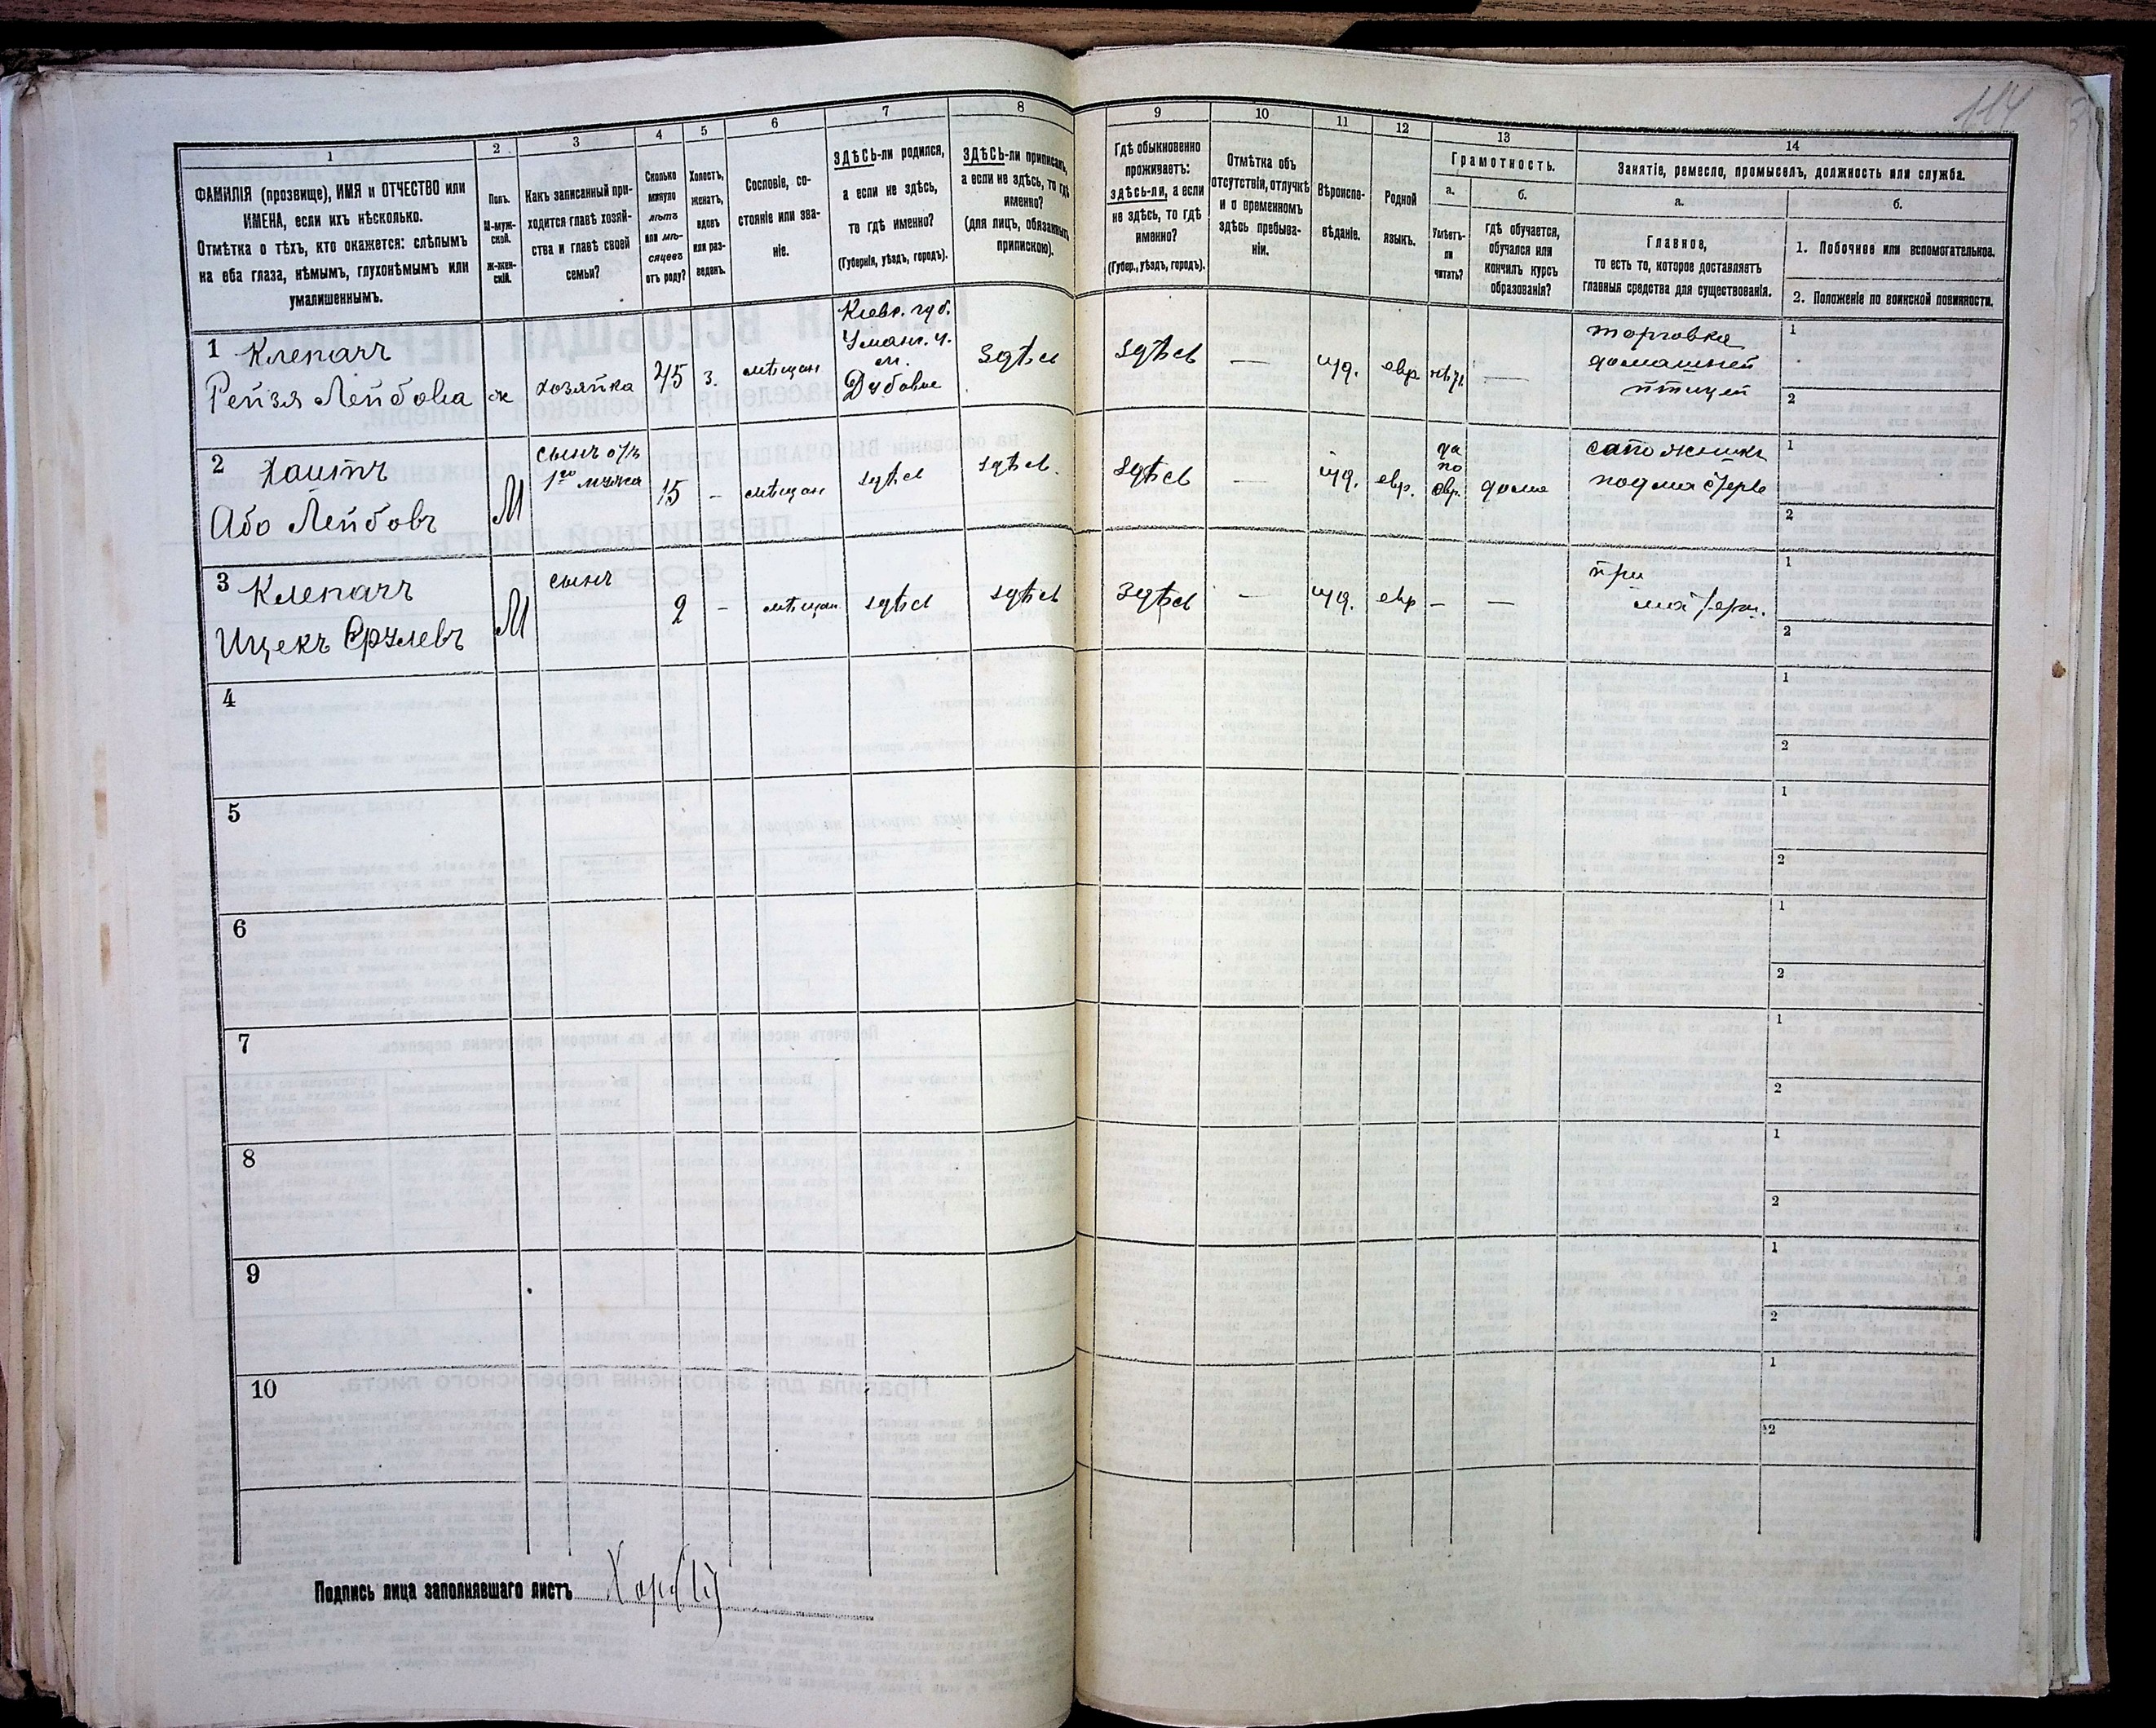 114
1
ФАМИЛІЯ (прозвище), ИМЯ и ОТЧЕСТВО или
ИМЕНА, если ихъ нѣсколько.
Отмѣтка о тѣхъ, кто окажется: слѣпымъ
на оба глаза, нѣмымъ, глухонѣмымъ или
умалишеннымъ.
2
Полъ.
М-муж-
ской.
Ж-жен-
скій.
3
Какъ записанный при-
ходится главѣ хозяй-
ства и главѣ своей
семьи?
4
Сколько
минуло
лѣтъ
или мѣ-
сяцевъ
отъ роду?
5
Холостъ,
женатъ,
вдовъ
или раз-
веденъ.
6
Сословіе, со-
стояніе или зва-
ніе.
7
ЗДѢСЬ-ли родился,
а если не здѣсь,
то гдѣ именно?
(Губернія, уѣздъ, городъ).
8
ЗДѢСЬ-ли приписанъ,
а если не здѣсь, то гдѣ
именно?
(для лицъ, обязанныхъ
припискою).
9
Гдѣ обыкновенно
проживаетъ:
здѣсь-ли, а если
не здѣсь, то гдѣ
именно?
(Губер., уѣздъ, городъ).
10
Отмѣтка объ
отсутствіи, отлучкѣ
и о временномъ
здѣсь пребыва-
ніи.
11
Вѣроиспо-
вѣданіе.
12
Родной
языкъ.
13
Грамотность.
а.
Умѣетъ-
ли
читать?
б.
гдѣ обучается,
обучался или
кончилъ курсъ
образованія?
14
Занятіе, ремесло, промыселъ, должность или служба.
а.
Главное,
то есть то, которое доставляетъ
главныя средства для существованія.
б.
1. Побочное или вспомогательное.
2. Положеніе по воинской повинности.
1
Клепачъ
Рейзя Лейбова
ж
хозяйка
45
з.
мѣщан
Кіевс. губ.
Уман. у.
м.
Дубовые
здѣсь
здѣсь
—
іуд.
евр
—
торговка
домашней
птицей
1
2
2
Хаитъ
Або Лейбовъ
М
сынъ отъ
1го мужа
15
-
мѣщан
здѣсь
здѣсь.
здѣсь
—
іуд.
евр.
да
по
евр.
дома
сапожникъ
подмастерье
1
2
3
Клепачъ
Ицекъ Срулевъ
М
сынъ
2
-
мѣщан
здѣсь
здѣсь
здѣсь
—
іуд.
евр
—
—
при
матери.
1
2
4
1
2
5
1
2
6
1
2
7
1
2
8
1
2
9
1
2
10
1
2
Подпись лица заполнявшаго листъ